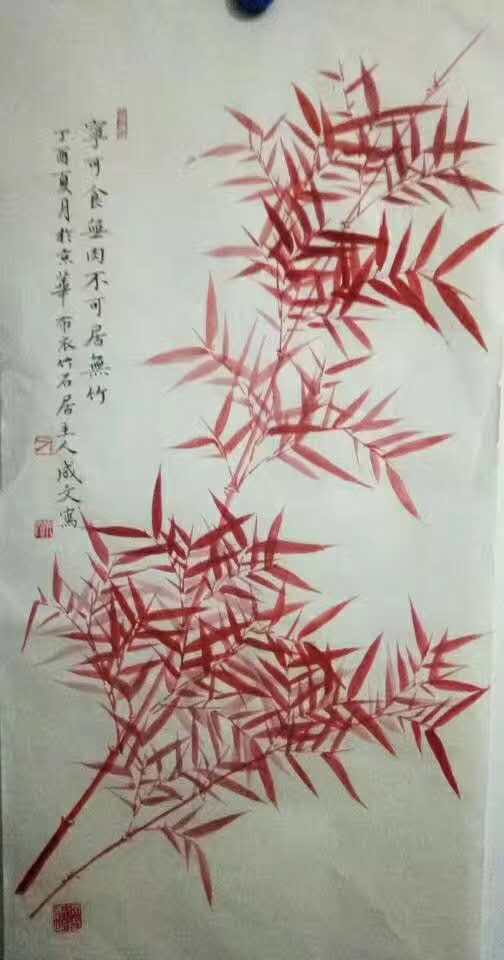 寧可食無肉不可居無竹
丁酉夏月於京華布衣竹石居主人成文寫